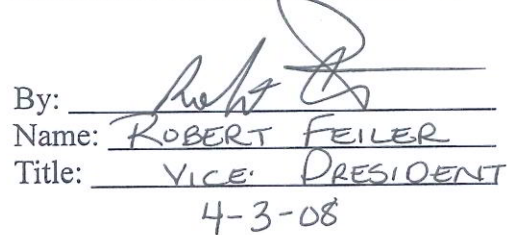 By:
Name: ROBERT FEILER
Title: VICE PRESIDENT
4-3-08